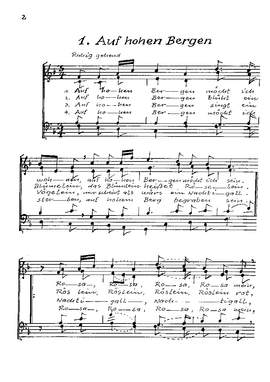 2
1. Auf hohen Bergen
Ruhig gehend
1. Auf ho-hen Ber-gen möcht ich
2. Auf ho-hen Ber-gen blüht ein
3. Auf ho-hen Ber-gen singt ein
4. Auf ho-hen Ber-gen möcht ich
woh-nen, auf ho-hen Ber-gen möcht ich sein.
Blümelein, das Blümlein heißet Rö-se-lein.
Vögelein, mir scheint als wärs ein Nachti-gall
ster-ben, auf hohen Berg begraben sein.
Ro-sa, Ro-sa, Ro-sa, Ro-sa mein,
Rös lein, Röslein, Röslein, Röslein rot,
Nachti-gall, Nach-tigall,
Ro-sa, Ro-sa, Ro-sa, Ro-sa mein,